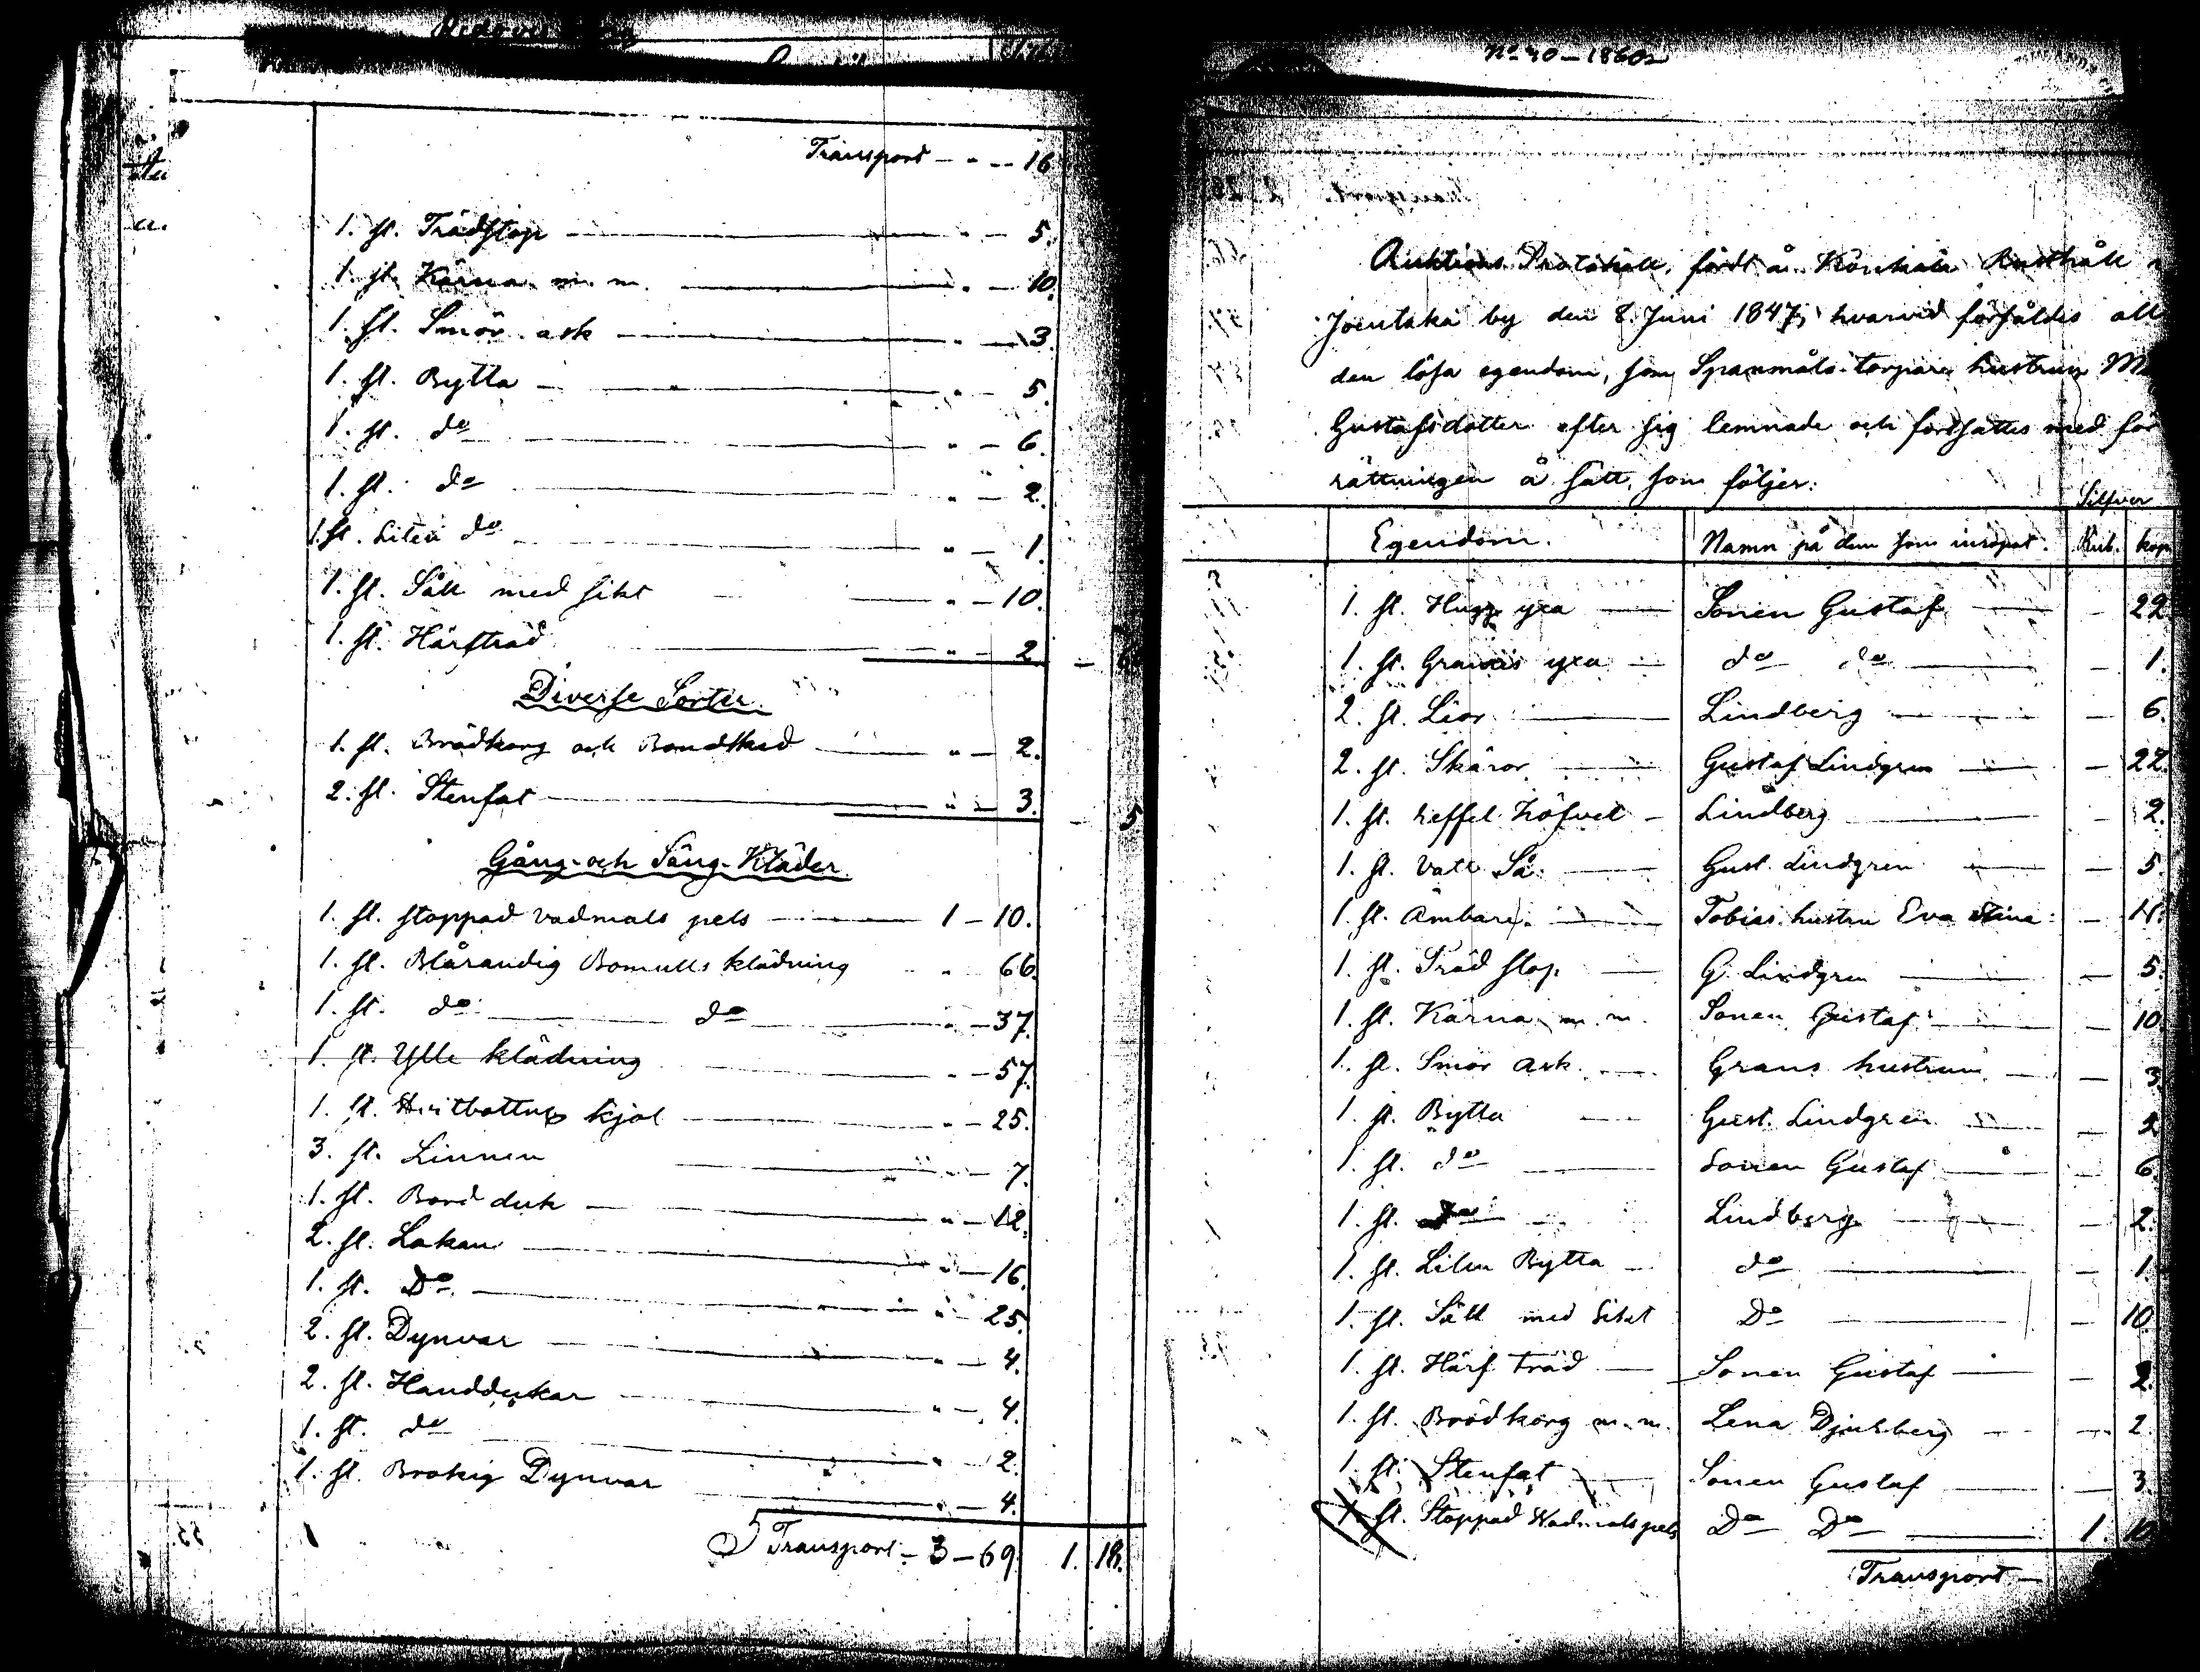 Transport - " - 16
1. st. Trädstop - " - 5.
1. st. Kärna m. m. - " - 10.
1. st. Smör ask - " - 3.
1. st. Bytta - " - 5.
1. st. do - " - 6.
1. st. do - " - 2.
1. st. Liten do - " - 1.
1. st. Såll med sikt - " - 10.
1. st. Härfträd - " - 2
Diverse Sorter.
1. st. Brödkorg och - " - 2.
2. st. Stenfat - " - 3. - 5
Gång- och Säng-Kläder.
1. st. stoppad vadmals pels - 1 - 10.
1. st. Blårandig Bomulls klädning " 66.
1. st. do do " - 37.
1. st. Ylle klädning " - 57.
1. st. kjol " - 25.
3. st. Linnen " - 7.
1. st. Bord duk " - 12.
2. st. Lakan " - 16.
1. st. Do " - 25.
2. st. Dynvar " - 4.
2. st. Handdukar " - 4.
1. st. do " - 2.
1. st. Brokig Dynvar " - 4.
Transport - 3 - 69. 1. 18.
No 40 - 1860
Auktions Protokoll, fördt å Rusthåll
Joentaka by den 8. Juni 1847, hvarvid försåldes all
den lösa egendom, som Spanmåls-torpare hustrun
Gustafsdotter efter sig lemnade och fortsattes med för
rättningen å sätt, som följer:
Silfver
Egendom. Namn på dem som inropat. Rub. kop.
1. st. Hugg yxa - Sonen Gustaf - 22.
1. st. yxa - do do - 1.
2. st. Liar - Lindberg - 6.
2. st. Skäror - Gustaf Lindgren - 22.
1. st. - Lindberg - 2.
1. st. Så - Gust. Lindgren - 5.
1. st. Ämbare - Tobias hustru Eva Stina
1. st. Träd stop - G. Lindgren - 5.
1. st. Kärna m. m. Sonen Gustaf - 10.
1. st. Smör ask - Grans hustrun - 3.
1. st. Bytta - Gust. Lindgren -
1. st. do - Sonen Gustaf - 6.
1. st. do - Lindberg - 2.
1. st. Liten Bytta - do - 1
1. st. Såll med Sikt Do - 10.
1. st. Härf träd - Sonen Gustaf - 2.
1. st. Brödkorg m. m. Lena Djurberg - 2.
1. st. Stenfat - Sonen Gustaf - 3.
1. st. Stoppad Wadmals pels Do Do - 1. 10
Transport -